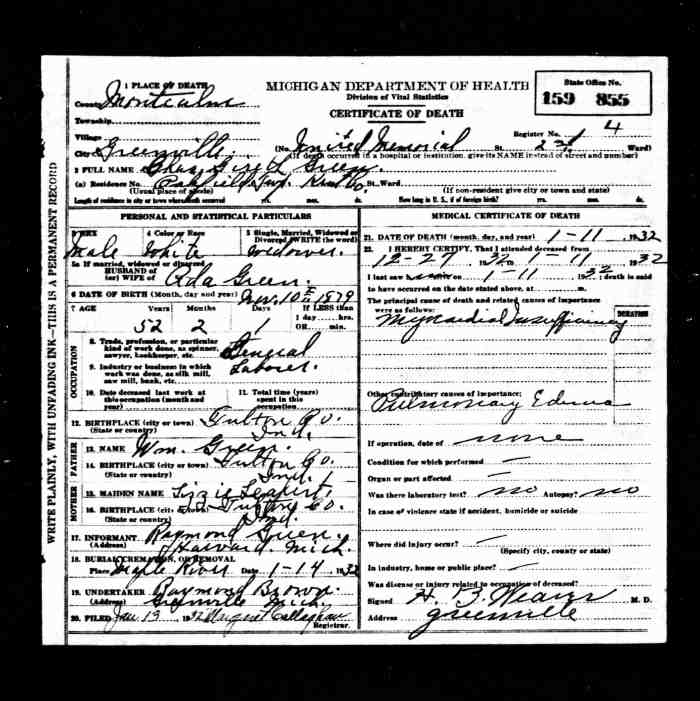 MICHIGAN DEPARTMENT OF HEALTH
Division of Vital Statistics
CERTIFICATE OF DEATH
State Office No.
159 855
Register No. 4
1 PLACE OF DEATH
County Montcalm
Township
Village
City Greenville (No. United Memorial St. 2nd Ward)
(If death occurred in a hospital or institution, give its NAME instead of street and number)
2 FULL NAME Green
(a) Residence No. Kent Co. St. Ward
(Usual place of abode) (If non-resident give city or town and state)
Length of residence in city or town where death occurred yrs. mos. ds. How long in U. S., if of foreign birth? yrs. mos. ds.
WRITE PLAINLY, WITH UNFADING INK—THIS IS A PERMANENT RECORD
PERSONAL AND STATISTICAL PARTICULARS
3 SEX 4 Color or Race 5 Single, Married, Widowed or Divorced (WRITE the word)
Male White Widower
5a If married, widowed or divorced
HUSBAND of
(or) WIFE of Ada Green
6 DATE OF BIRTH (Month, day and year) Nov. 10 1879
7 AGE Years Months Days If LESS than
1 day hrs.
OR min.
52 2 1
OCCUPATION
8. Trade, profession, or particular
kind of work done, as spinner,
sawyer, bookkeeper, etc. General
9. Industry or business in which
work was done, as silk mill,
saw mill, bank, etc. Laborer
10. Date deceased last work at
this occupation (month and
year)
11. Total time (years)
spent in this
occupation
12. BIRTHPLACE (city or town) Fulton Co.
(State or country) Ind.
FATHER
13. NAME Wm. Green
14. BIRTHPLACE (city or town) Fulton Co.
Ind.
MOTHER
15. MAIDEN NAME Lizzie
16. BIRTHPLACE (city or town) Fulton Co.
(State or country) Ind.
17. INFORMANT Raymond Green
(Address) Harvard, Mich.
18. BURIAL, CREMATION, OR REMOVAL
Place Maple River Date 1-14 1932
19. UNDERTAKER Raymond Brown
(Address) Greenville Mich.
20. FILED Jan 13 1932 Margaret Callaghan
Registrar.
MEDICAL CERTIFICATE OF DEATH
21. DATE OF DEATH (month, day, and year) 1-11 1932
22. I HEREBY CERTIFY, That I attended deceased from
12-27 1932 to 1-11 1932
I last saw on 1-11 1932 death is said
to have occurred on the date stated above, at m.
The principal cause of death and related causes of importance
were as follows: DURATION
Myocardial Insufficiency
Other contributory causes of importance:
Pulmonary Edema
If operation, date of none
Condition for which performed —
Organ or part affected —
Was there laboratory test? no Autopsy? no
In case of violence state if accident, homicide or suicide
Where did injury occur? —
(Specify city, county or state)
In industry, home or public place? —
Was disease or injury related to occupation of deceased?
Signed M. D.
Address Greenville